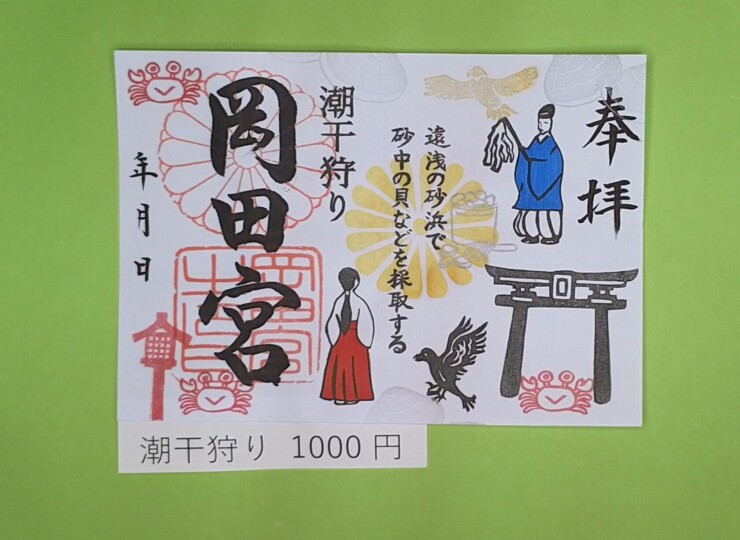 奉拝
遠浅の砂浜で
砂中の貝などを採取する
潮干狩り
岡田宮
年月日
潮干狩り 1000 円